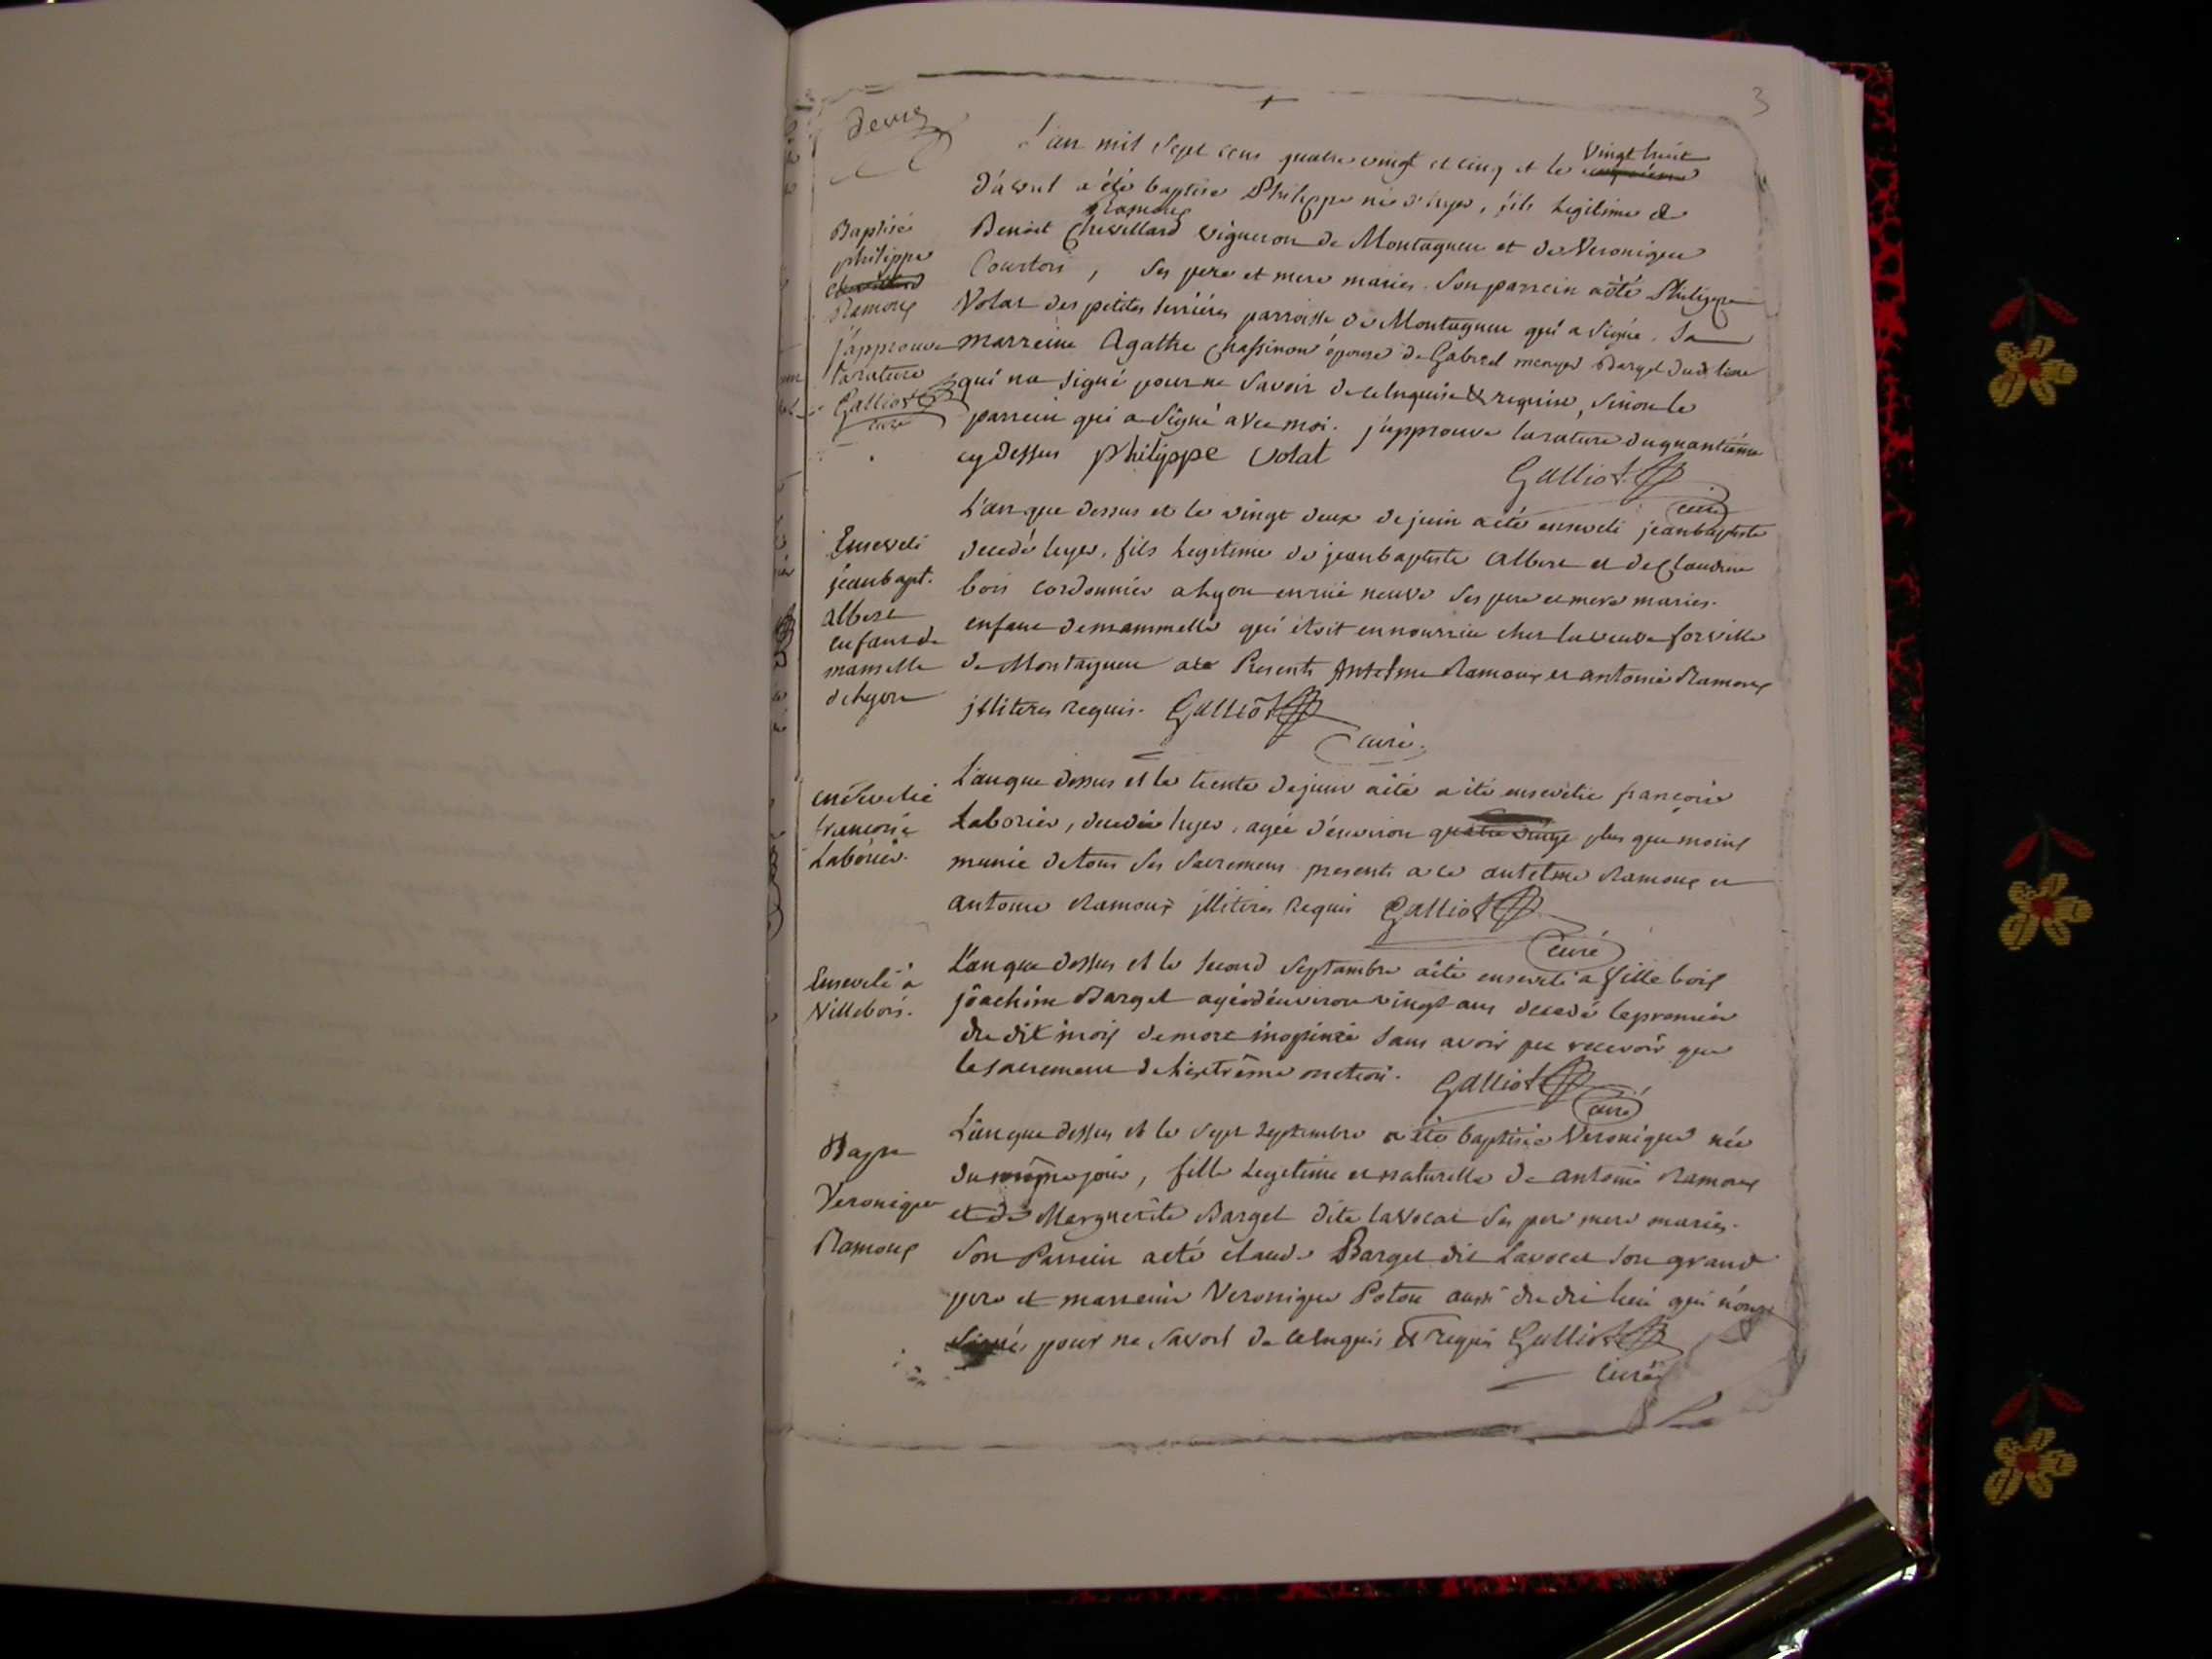 3
L'an mil sept cens quatre vingt et cinq et le vingt huit
d'avril a été baptisé Philippe né d'hyer, fils legitime de
Ramoux
Benoit Chevillard vigneron de Montagneu et de Veronique
Courtois, ses pere et mere maries. Son parrein a été Philippe
Volat des petites serriéres parroisse de Montagneu qui a signé. Sa
marreine Agathe Chassinon épouse de Gabriel Barget dudit lieu
qui na signé pour ne savoir de ce enquise & requise, sinon le
parrein qui a signé avec moi. j'approuve la rature du quantiéme
cy dessus Philippe Volat
Galliot curé
Baptisé
philippe
Ramoux
j'approuve
la rature
Galliot
curé
L'an que dessus et le vingt deux de juin a été enseveli jeanbaptiste
decedé hyer, fils legitime de jeanbaptiste Albert et de Claudine
bois cordonnier a lyon en ruë neuve ses pere et mere maries.
enfant de mammelle qui étoit en nourrice chez la veuve forville
de Montagneu Presents Antelme Ramoux et antoine Ramoux
jlliteres requis. Galliot
curé.
Enseveli
jeanbapt.
albert
enfant de
mamelle
de lyon
L'an que dessus et le trente de juin a été a été ensevelie françoise
Laborier, decedée hyer, agée d'environ quatre vingt plus que moins
munie de tous ses sacremens presents a ce antelme Ramoux et
antoine Ramoux jlliteres requis Galliot
curé
ensevelie
francoise
Laborier.
L'an que dessus et le second septambre a été enseveli a Villebois
joachim Barget agé d'environ vingt ans decedé le premier
du dit mois de mort inopinée sans avoir pu recevoir que
le sacrement de l'extrême onction. Galliot
curé
Enseveli à
Villebois.
L'an que dessus et le sept septembre a été baptisée Veronique née
du même jour, fille legitime et naturelle de antoine Ramoux
et de Marguerite Barget dite lavocat ses pere mere maries.
Son Parrein a été claude Barget dit Lavocat son grand
pere et marreine Veronique Poton aussi du dit lieu qui n'ont
signés pour ne savoir de ce enquis & requis Galliot
curé
Bapt
Veronique
Ramoux